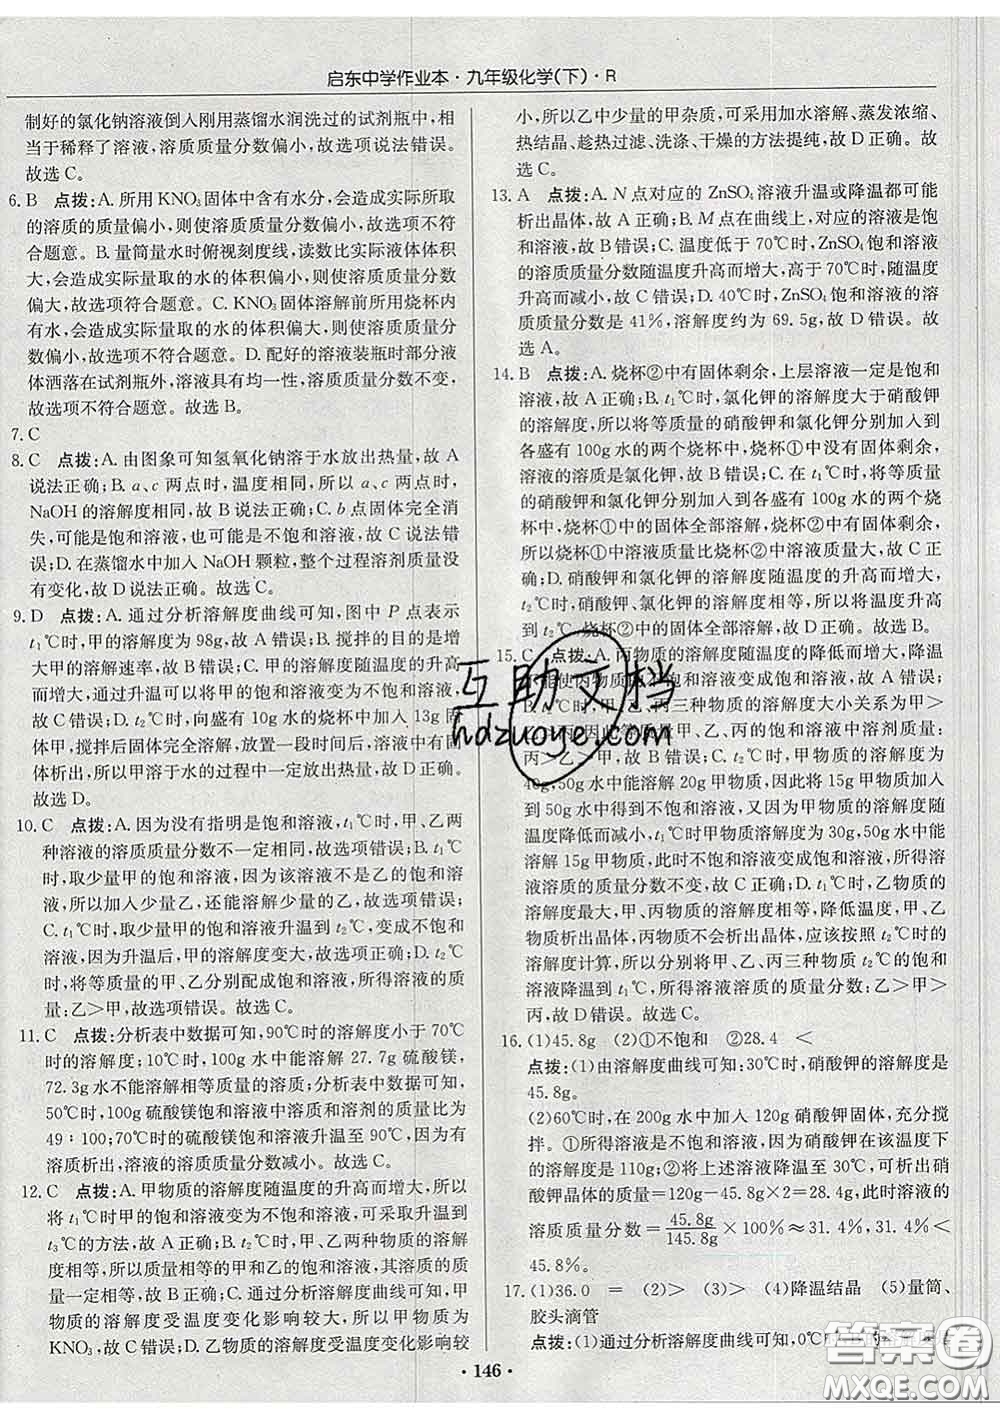 启东中学作业本·九年级化学(下)·R
制好的氯化钠溶液倒入刚用蒸馏水润洗过的试剂瓶中,相
当于稀释了溶液,溶质质量分数偏小,故选项说法错误。
故选C。
6. B 点拨:A. 所用KNO₃固体中含有水分,会造成实际所取
的溶质的质量偏小,则使溶质质量分数偏小,故选项不符
合题意。B. 量筒量水时俯视刻度线,读数比实际液体体积
大,会造成实际量取的水的体积偏小,则使溶质质量分数
偏大,故选项符合题意。C. KNO₃固体溶解前所用烧杯内
有水,会造成实际量取的水的体积偏大,则使溶质质量分
数偏小,故选项不符合题意。D. 配好的溶液装瓶时部分液
体洒落在试剂瓶外,溶液具有均一性,溶质质量分数不变,
故选项不符合题意。故选B。
7. C
8. C 点拨:A. 由图象可知氢氧化钠溶于水放出热量,故A
说法正确;B. a、c两点时,温度相同,所以a、c两点时,
NaOH的溶解度相同,故B说法正确;C. b点固体完全消
失,可能是饱和溶液,也可能是不饱和溶液,故C说法错
误;D. 在蒸馏水中加入NaOH颗粒,整个过程溶剂质量没
有变化,故D说法正确。故选C。
9. D 点拨:A. 通过分析溶解度曲线可知,图中P点表示
t₁℃时,甲的溶解度为98g,故A错误;B. 搅拌的目的是增
大甲的溶解速率,故B错误;C. 甲的溶解度随温度的升高
而增大,通过升温可以将甲的饱和溶液变为不饱和溶液,
故C错误;D. t₂℃时,向盛有10g水的烧杯中加入13g固
体甲,搅拌后固体完全溶解,放置一段时间后,烧杯中有固
体析出,所以甲溶于水的过程中一定放出热量,故D正确。
故选D。
10. C 点拨:A. 因为没有指明是饱和溶液,t₁℃时,甲、乙两
种溶液的溶质质量分数不一定相同,故选项错误;B. t₁℃
时,取少量甲的饱和溶液,因为该溶液不是乙的饱和溶
液,所以加入少量乙,还能溶解少量的乙,故选项错误;
C. t₁℃时,取少量甲的饱和溶液升温到t₂℃,变成不饱和
溶液,因为升温后,甲的溶解度变大,故选项正确;D. t₂℃
时,将等质量的甲、乙分别配成饱和溶液,所得溶液的质
量:乙>甲,故选项错误。故选C。
11. C 点拨:分析表中数据可知,90℃时的溶解度小于70℃
时的溶解度;10℃时,100g水中能溶解27.7g硫酸镁,
72.3g水不能溶解相等质量的溶质;分析表中数据可知,
50℃时,100g硫酸镁饱和溶液中溶质和溶剂的质量比为
49∶100;70℃时的硫酸镁饱和溶液升温至90℃,因为有
溶质析出,溶液的溶质质量分数减小。故选C。
12. C 点拨:A. 甲物质的溶解度随温度的升高而增大,所以
将t₁℃时的饱和溶液变为不饱和溶液,可采用升温到
t₃℃的方法,故A正确;B. t₂℃时,甲、乙两种物质的溶解
度相等,所以等质量的甲和乙的饱和溶液,其溶质质量一
定相等,故B正确;C. KNO₃中混有少量NaCl,KNO₃的
溶解度受温度变化影响较大,所以甲物质的溶解度曲线为
KNO₃,故C错误;D. 乙物质的溶解度受温度变化影响较
小,所以乙中少量的甲杂质,可采用加水溶解、蒸发浓缩、
热结晶、趁热过滤、洗涤、干燥的方法提纯,故D正确。
故选C。
13. A 点拨:A. N点对应的ZnSO₄溶液升温或降温都可能
析出晶体,故A正确;B. M点在曲线上,对应的溶液是饱
和溶液,故B错误;C. 温度低于70℃时,ZnSO₄饱和溶液
的溶质质量分数随温度升高而增大,高于70℃时,随温度
升高而减小,故C错误;D. 40℃时,ZnSO₄饱和溶液的溶
质质量分数是41%,溶解度约为69.5g,故D错误。
故选A。
14. B 点拨:A. 烧杯②中有固体剩余,上层溶液一定是饱和
溶液,故A正确;B. t₁℃时,氯化钾的溶解度大于硝酸钾的
溶解度,所以将等质量的硝酸钾和氯化钾分别加入到
各盛有100g水的两个烧杯中,烧杯①中没有固体剩余,
溶液的溶质是氯化钾,故B错误;C. 在t₁℃时,将等质量的
硝酸钾和氯化钾分别加入到各盛有100g水的两个烧
杯中,烧杯①中的固体全部溶解,烧杯②中有固体剩余,
所以烧杯①中溶液质量比烧杯②中溶液质量大,故C正
确;D. 硝酸钾和氯化钾的溶解度随温度的升高而增大,
t₂℃时,硝酸钾、氯化钾的溶解度相等,所以,温度升高
到t₂℃,烧杯②中的固体全部溶解,故D正确。故选B。
15. C 点拨:A. 丙物质的溶解度随温度的降低而增大,
能使丙物质的饱和溶液变成不饱和溶液,故A错
甲、乙、丙三种物质的溶解度大小关系为甲>
因此等质量的甲、乙、丙的饱和溶液中溶剂质量:
丙>乙>甲,故B错误;C. t₂℃时甲物质的溶解度为
40g,50g水中能溶解20g甲物质,因此将15g甲物质加入
到50g水中得到不饱和溶液,又因为甲物质的溶解度随
温度降低而减小,t₁℃时甲物质的溶解度为30g,50g水中能
溶解15g甲物质,此时不饱和溶液变成饱和溶液,所得溶
液溶质的质量分数不变,故C正确;D. t₂℃时,乙物质的
溶解度最大,甲、丙物质的溶解度相等,降低温度,甲、乙
物质析出晶体,丙物质不会析出晶体,应该按照t₂℃的溶
解度计算,所以,甲、乙、丙三种物质t₂℃的饱和溶液
降温到t₁℃,所得溶液的溶质的质量分数:乙>甲>
丙,故D错误。故选C。
16. (1)45.8g (2)①不饱和 ②28.4 <
点拨:(1)由溶解度曲线可知:30℃时,硝酸钾的溶解度是
45.8g。
(2)60℃时,在200g水中加入120g硝酸钾固体,充分搅
拌。①所得溶液是不饱和溶液,因为硝酸钾在该温度下
的溶解度是110g;②将上述溶液降温至30℃,可析出硝
酸钾晶体的质量=120g-45.8g×2=28.4g,此时溶液的
溶质质量分数=45.8g/145.8g×100%≈31.4%,31.4%<
45.8%。
17. (1)36.0 = (2)> (3)> (4)降温结晶 (5)量筒、
胶头滴管
点拨:(1)通过分析溶解度曲线可知,0℃
·146·
互助文档
hdzuoye.com
答案圈
MXQE.COM